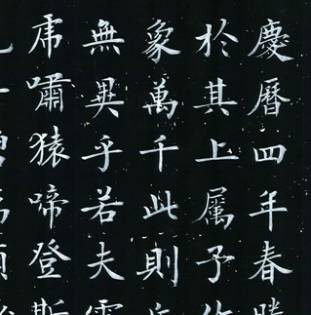 慶曆四年春滕
於其上属予作
象萬千此則
無異乎若夫霪
虎嘯猿啼登斯